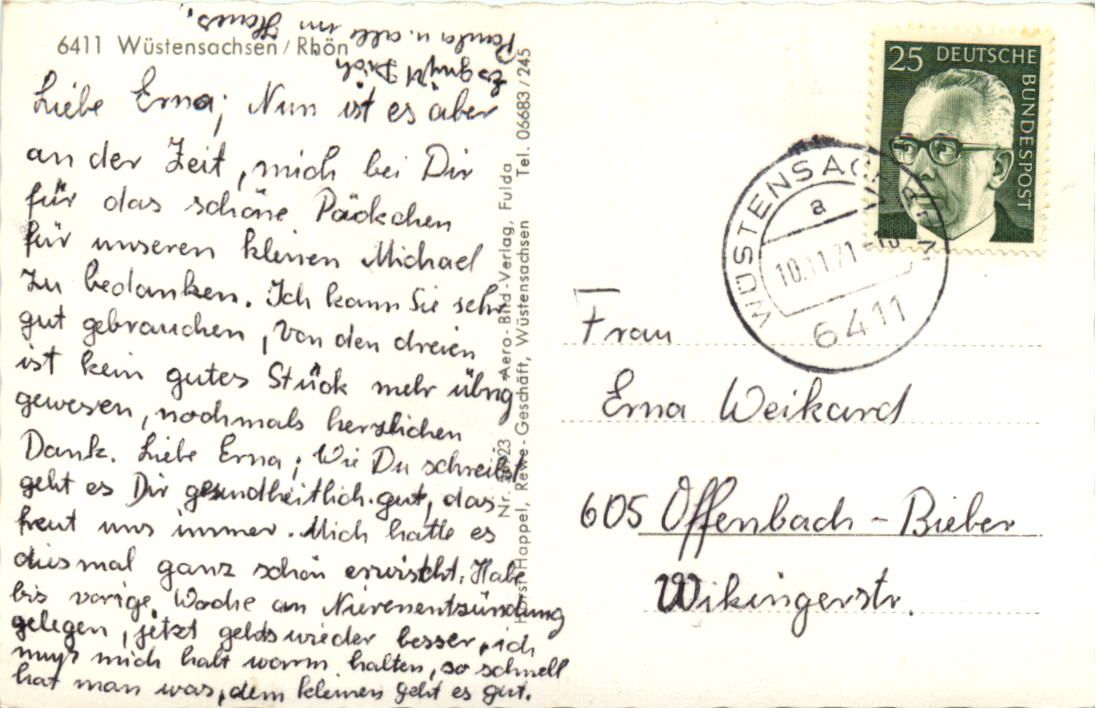 6411 Wüstensachsen / Rhön
Liebe Erna; Nun ist es aber
an der Zeit, mich bei Dir
für das schöne Päckchen
für unseren kleinen Michael
zu bedanken. Ich kann Sie sehr
gut gebrauchen, von den dreien
ist kein gutes Stück mehr übrig
gewesen, nochmals herzlichen
Dank. Liebe Erna; Wie Du schreibst
geht es Dir gesundheitlich gut, das
freut uns immer. Mich hatte es
diesmal ganz schön erwischt. Habe
bis vorige Woche an Nierenentzündung
gelegen, jetzt gehts wieder besser, ich
muß mich halt warm halten, so schnell
hat man was, dem kleinen geht es gut.
Es grüßt Dich
Paula u. alle im Haus.
Aero-Bild-Verlag, Fulda
Happel, Rewe-Geschäft, Wüstensachsen Tel. 06683/245
25 DEUTSCHE
BUNDESPOST
a
10.11.71
6411
Frau
Erna Weikard
605 Offenbach - Bieber
Wikingerstr.